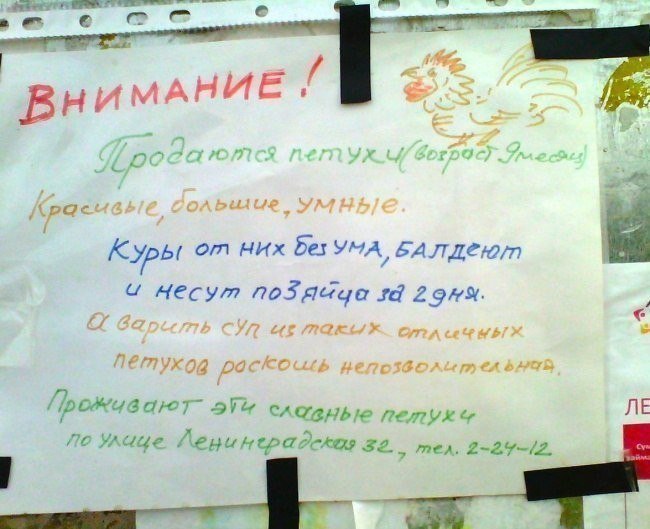 ВНИМАНИЕ!
Продаются петухи (возраст 9 месяц)
Красивые, большие, умные.
Куры от них без ума, БАЛДеЮТ
и несут по 3 яйца за 2 дня.
А варить суп из таких отличных
петухов роскошь непозволительная.
Проживают эти славные петухи
по улице Ленинградская 32, тел. 2-24-12
ЛЕ